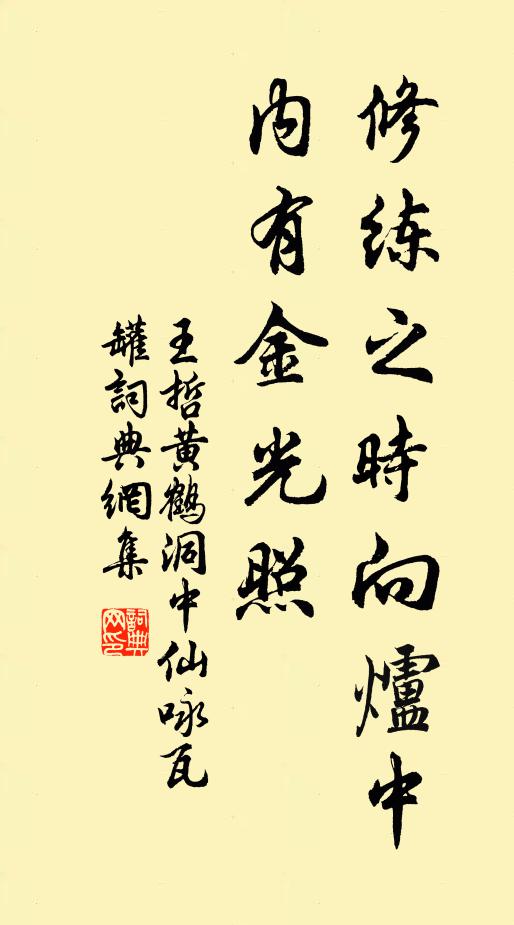 修練之時向爐中
内有金光照
王哲黄鶴洞中仙咏瓦
罐詞典網集
詞典
网印